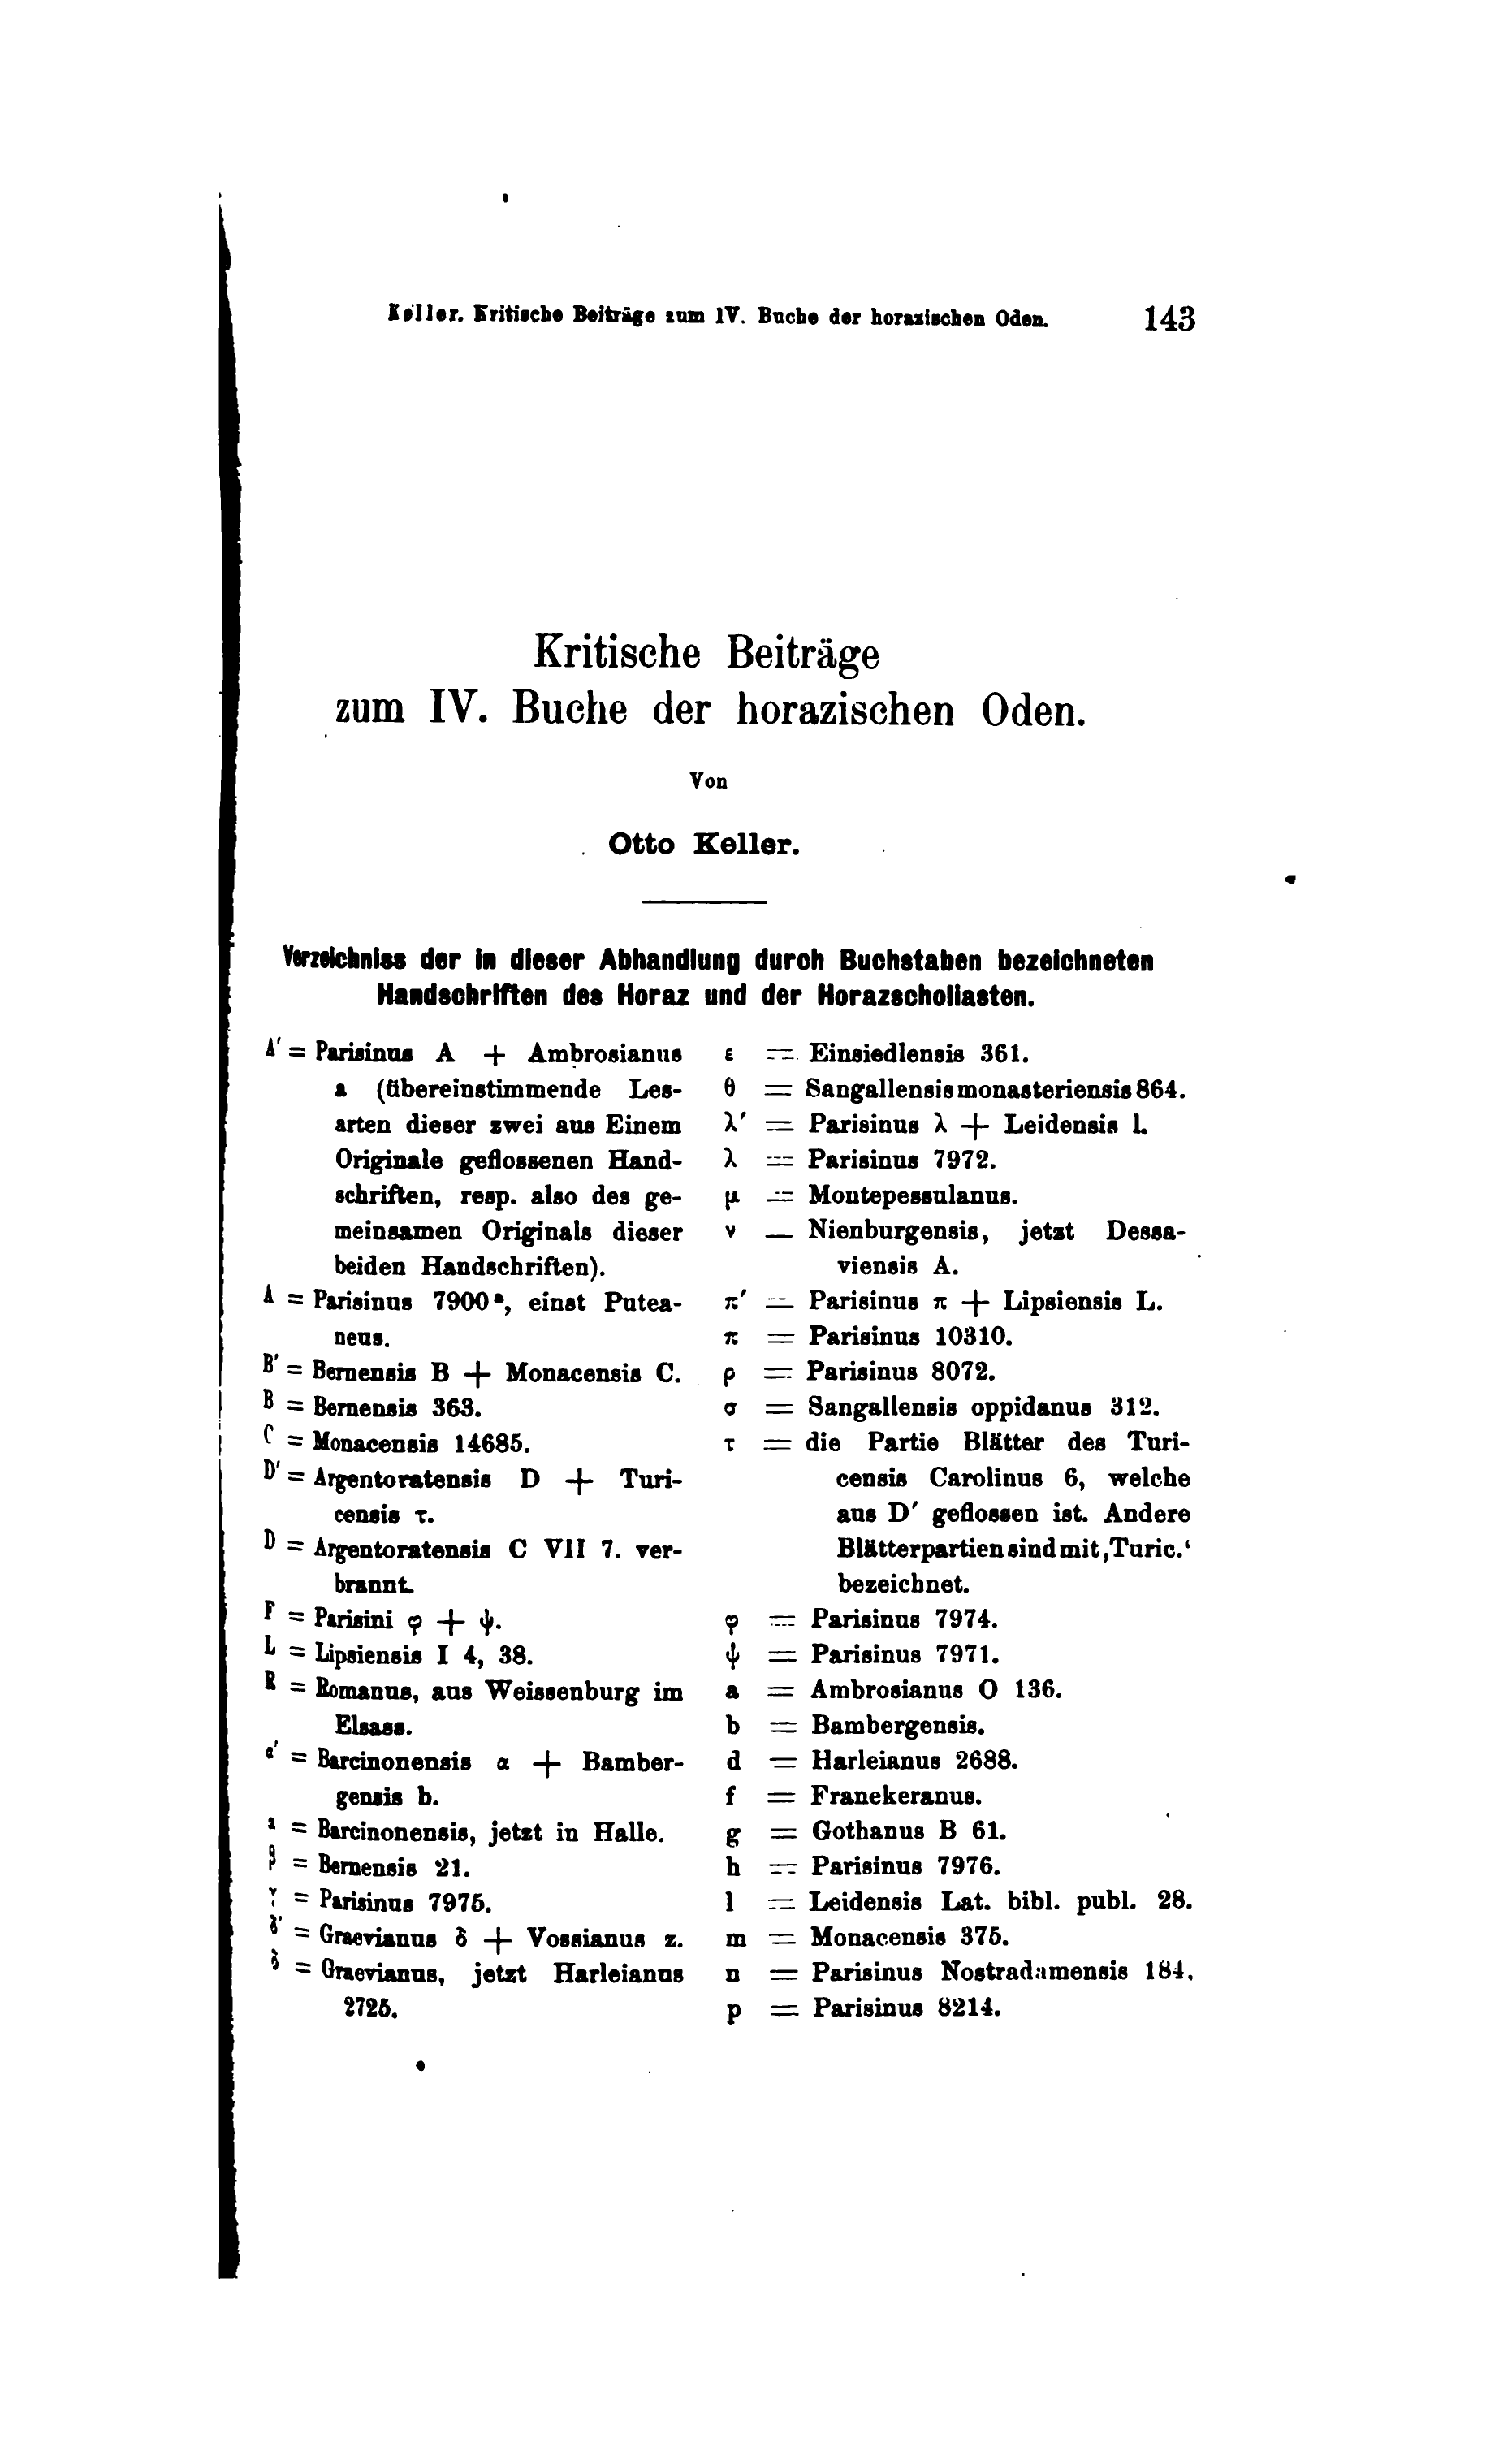 Keller. Kritische Beiträge zum IV. Buche der horazischen Oden. 143
Kritische Beiträge
zum IV. Buche der horazischen Oden.
Von
Otto Keller.
Verzeichniss der in dieser Abhandlung durch Buchstaben bezeichneten
Handschriften des Horaz und der Horazscholiasten.
A′ = Parisinus A + Ambrosianus
a (übereinstimmende Les-
arten dieser zwei aus Einem
Originale geflossenen Hand-
schriften, resp. also des ge-
meinsamen Originals dieser
beiden Handschriften).
A = Parisinus 7900ª, einst Putea-
neus.
B′ = Bernensis B + Monacensis C.
B = Bernensis 363.
C = Monacensis 14685.
D′ = Argentoratensis D + Turi-
censis τ.
D = Argentoratensis C VII 7. ver-
brannt.
F = Parisini φ + ψ.
L = Lipsiensis I 4, 38.
R = Romanus, aus Weissenburg im
Elsass.
α′ = Barcinonensis α + Bamber-
gensis b.
α = Barcinonensis, jetzt in Halle.
β = Bernensis 21.
γ = Parisinus 7975.
δ′ = Graevianus δ + Vossianus z.
δ = Graevianus, jetzt Harleianus
2725.
ε = Einsiedlensis 361.
θ = Sangallensis monasteriensis 864.
λ′ = Parisinus λ + Leidensis l.
λ = Parisinus 7972.
μ = Montepessulanus.
ν = Nienburgensis, jetzt Dessa-
viensis A.
π′ = Parisinus π + Lipsiensis L.
π = Parisinus 10310.
ρ = Parisinus 8072.
σ = Sangallensis oppidanus 312.
τ = die Partie Blätter des Turi-
censis Carolinus 6, welche
aus D′ geflossen ist. Andere
Blätterpartien sind mit ‚Turic.‘
bezeichnet.
φ = Parisinus 7974.
ψ = Parisinus 7971.
a = Ambrosianus O 136.
b = Bambergensis.
d = Harleianus 2688.
f = Franekeranus.
g = Gothanus B 61.
h = Parisinus 7976.
l = Leidensis Lat. bibl. publ. 28.
m = Monacensis 375.
n = Parisinus Nostradamensis 184.
p = Parisinus 8214.